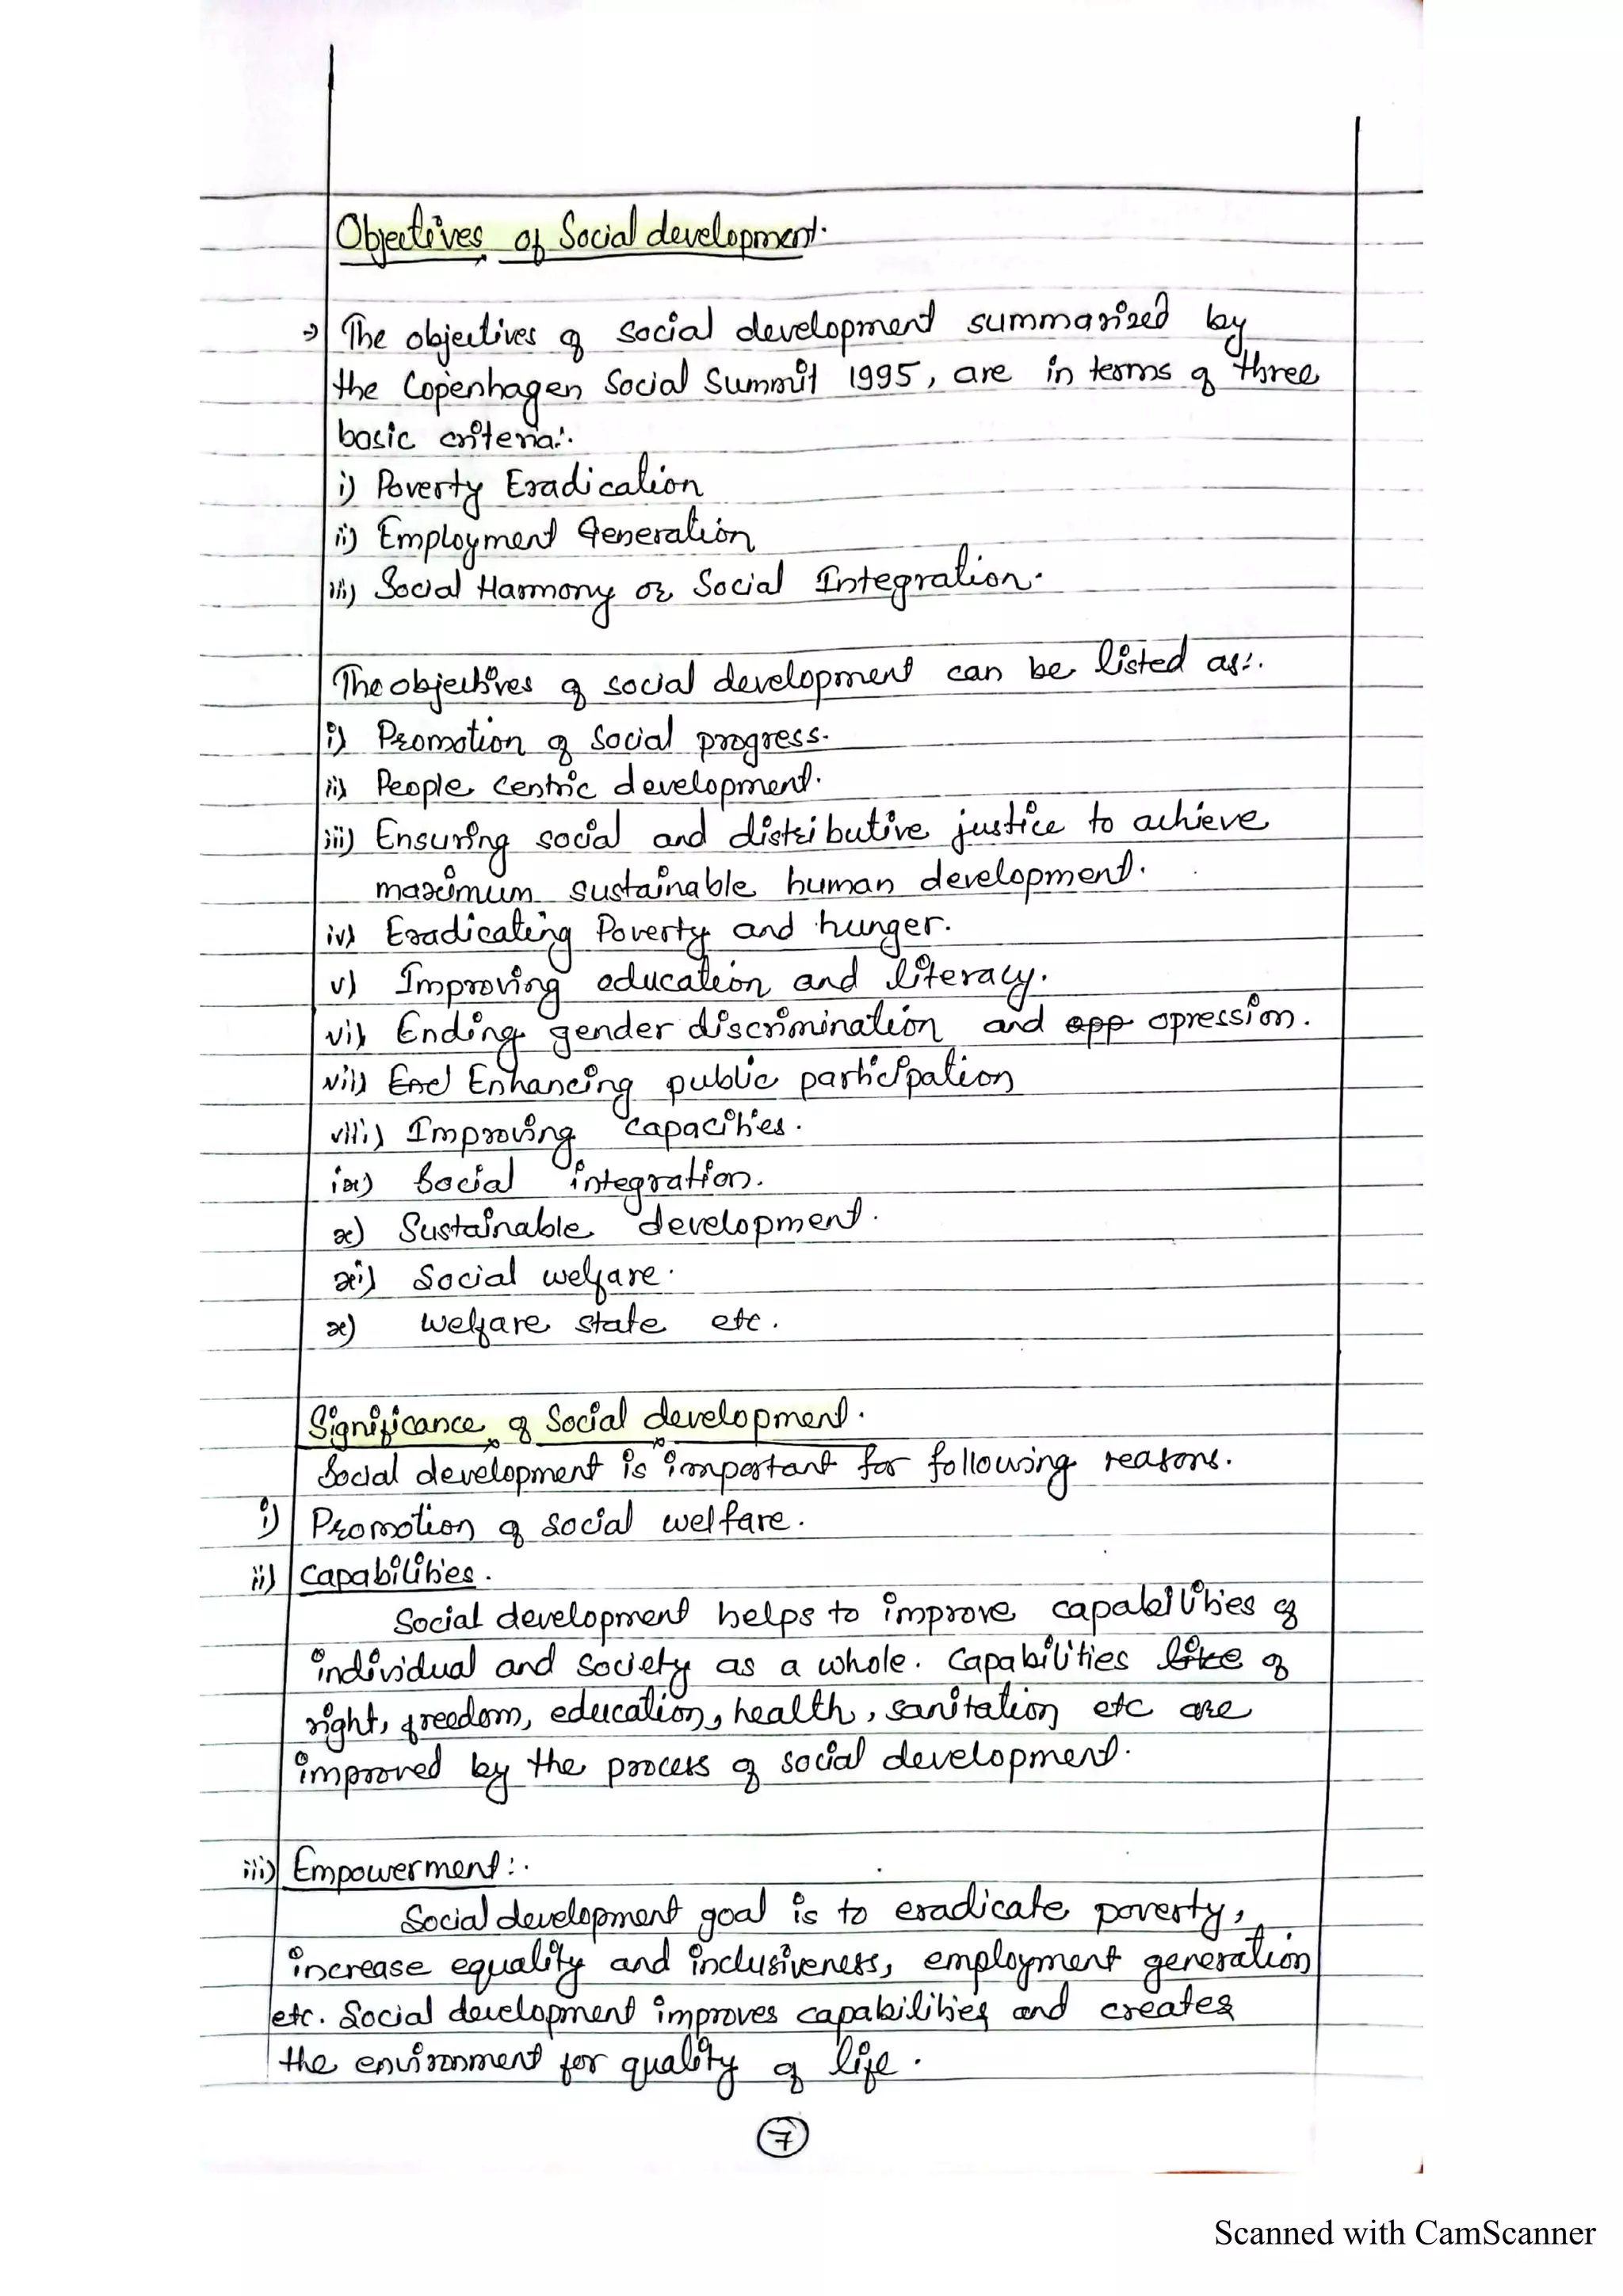 Objectives of Social development.
⇒ The objectives of social development summarized by
the Copenhagen Social Summit 1995, are in terms of three
basic criteria:.
i) Poverty Eradication
ii) Employment Generation
iii) Social Harmony or Social Integration.
The objectives of social development can be listed as:.
i) Promotion of Social progress.
ii) People centric development.
iii) Ensuring social and distributive justice to achieve
maximum sustainable human development.
iv) Eradicating Poverty and hunger.
v) Improving education and literacy.
vi) Ending gender discrimination and opp opression.
vii) End Enhancing public participation
viii) Improving capacities.
ix) Social integration.
x) Sustainable development.
xi) Social welfare.
x) welfare state etc.
Significance of Social development.
Social development is important for following reasons.
i) Promotion of social welfare.
ii) Capabilities.
Social development helps to improve capabilities of
individual and society as a whole. Capabilities like of
right, freedom, education, health, sanitation etc are
improved by the process of social development.
iii) Empowerment:.
Social development goal is to eradicate poverty,
increase equality and inclusiveness, employment generation
etc. Social development improves capabilities and creates
the environment for quality of life.
7
Scanned with CamScanner